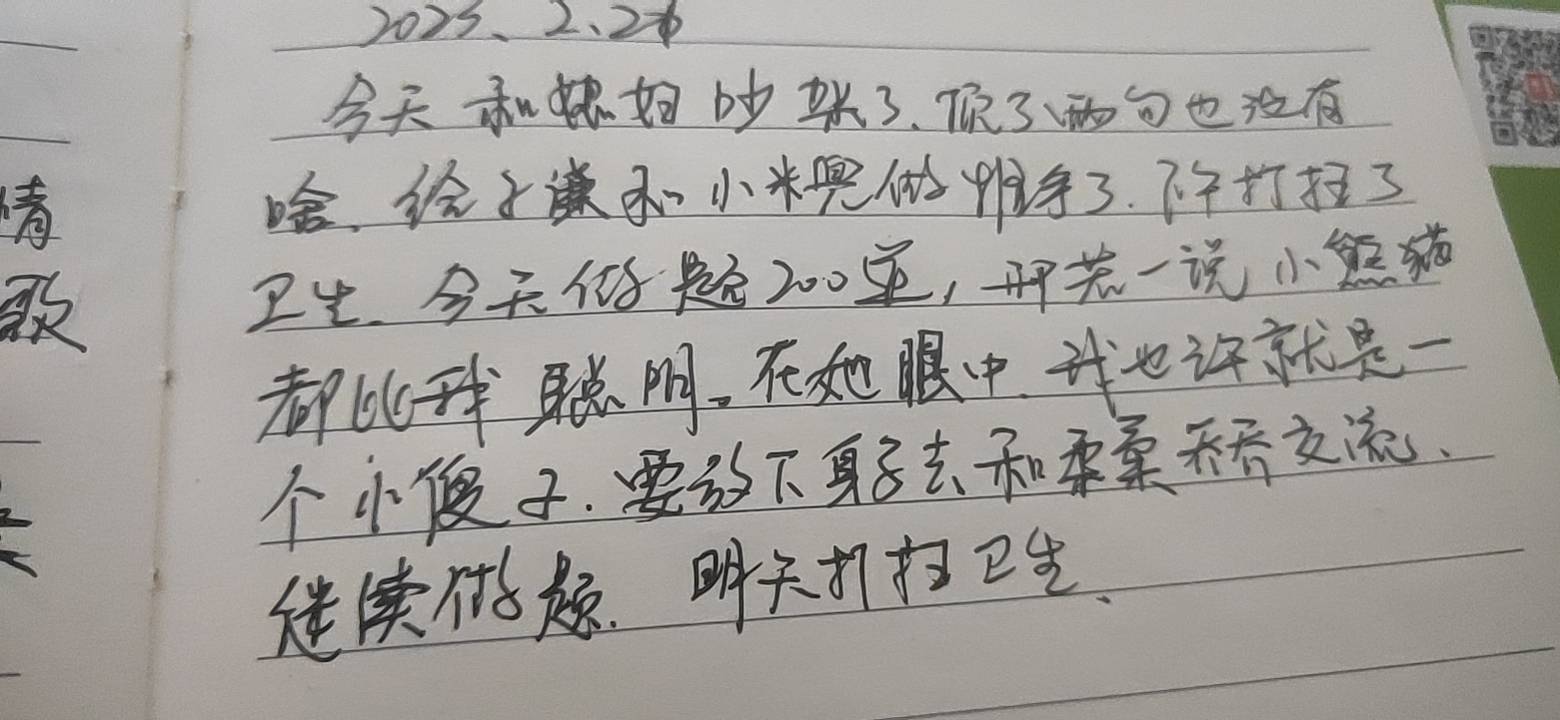 2025、2、26
今天和媳妇吵架了、顶了两句也没有
啥、给子谦和小米兜做推拿了、下午打扫了
卫生、今天做题200道，一说小熊猫
都比我聪明。在她眼中、我也许就是一
个小傻子、要放下身子去和柔柔乔乔交流、
继续做题、明天打扫卫生、
情
歌